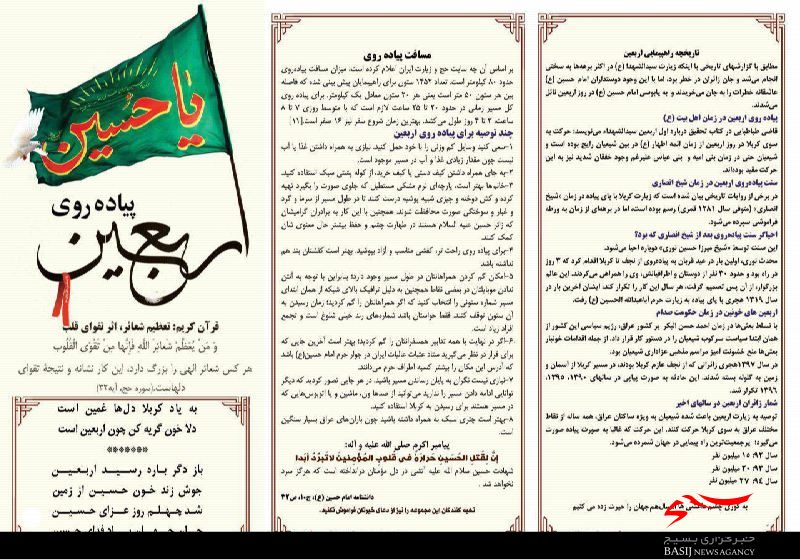 تاریخچه راهپیمایی اربعین
مطابق با گزارشهای تاریخی با اینکه زیارت سیدالشهدا (ع) در اکثر برهه‌ها به سختی
انجام می‌شد و جان زائران در خطر بود، اما با این وجود دوستداران امام حسین (ع)
عاشقانه خطرات را به جان می‌خریدند و به پابوسی امام حسین (ع) در روز اربعین نائل
می‌شدند.
پیاده روی اربعین در زمان اهل بیت (ع)
قاضی طباطبایی در کتاب تحقیق درباره اول اربعین سیدالشهداء می‌نویسد: حرکت به
سوی کربلا در روز اربعین از زمان ائمه اطهار (ع) در بین شیعیان رایج بوده است و
شیعیان حتی در زمان بنی امیه و بنی عباس علیرغم وجود خفقان شدید نیز به این
حرکت مقید بوده‌اند.
سنت پیاده‌روی اربعین در زمان شیخ انصاری
در برخی از روایات تاریخی بیان شده است که زیارت کربلا با پای پیاده در زمان «شیخ
انصاری» (متوفی سال ۱۲۸۱ قمری) رسم بوده است، اما در برهه‌ای از زمان به ورطه
فراموشی سپرده می‌شود.
احیاگر سنت پیاده‌روی بعد از شیخ انصاری که بود؟
این سنت توسط «شیخ میرزا حسین نوری» دوباره احیا می‌شود.
محدث نوری، اولین بار در عید قربان به پیاده‌روی از نجف تا کربلا اقدام کرد که ۳ روز
در راه بود و حدود ۳۰ نفر از دوستان و اطرافیانش، وی را همراهی می‌کردند. این عالم
بزرگوار، از آن پس تصمیم گرفت، هر سال این کار را تکرار کند. ایشان آخرین بار در
سال ۱۳۱۹ هجری با پای پیاده به زیارت حرم اباعبدالله الحسین (ع) رفت.
اربعین های خونین در زمان حکومت صدام
با تسلط بعثی‌ها در زمان احمد حسن البکر بر کشور عراق، رژیم سیاسی این کشور از
همان ابتدا سیاست سرکوب شیعیان را در دستور کار قرار داد. از جمله اقدامات خونبار
بعثی‌ها منع خشونت آمیز مراسم مذهبی عزاداری شیعیان بود.
در سال ۱۳۹۷هجری زائرانی که از نجف عازم کربلا بودند، در مسیر کربلا از آسمان و
زمین به گلوله بسته شدند. این حادثه به صورت پیاپی در سالهای ۱۳۹۰، ۱۳۹۵،
۱۳۹۶ تکرار شد.
شمار زائران اربعین دو سالهای اخیر
توصیه به زیارت اربعین باعث شده شیعیان به ویژه ساکنان عراق، همه ساله از نقاط
مختلف عراق به سوی کربلا حرکت کنند. این حرکت که غالبا به صورت پیاده صورت
می‌گیرد؛ پرجمعیت‌ترین راه پیمایی در جهان شمرده می‌شود.
سال ۹۲: ۱۵ میلیون نفر
سال ۹۳: ۲۰ میلیون نفر
سال ۹۴: ۲۷ میلیون نفر
به کوری چشم
جهان را حیرت زده می کنیم
مسافت پیاده روی
بر اساس آن چه سایت حج و زیارت ایران اعلام کرده است، میزان مسافت پیاده‌روی
حدود ۸۰ کیلومتر است. تعداد ۱۴۵۲ ستون برای راهپیمایان پیش بینی شده که فاصله
بین هر ستون ۵۰ متر است یعنی هر ۲۰ ستون معادل یک کیلومتر. برای پیاده روی
کل مسیر زمانی در حدود ۲۰ تا ۲۵ ساعت لازم است که با متوسط روزی ۷ تا ۸
ساعت، ۲ تا ۳ روز طول می‌کشد. بهترین زمان شروع سفر نیز ۱۶ صفر است.[۱۱]
چند توصیه برای پیاده روی اربعین
۱-سعی کنید وسایل کم وزنی را با خود حمل کنید. نیازی به همراه داشتن غذا یا آب
نیست چون مقدار زیادی غذا و آب در مسیر موجود است.
۲-به جای همراه داشتن کیف دستی یا کیف خرید، از کوله پشتی سبک استفاده کنید.
۳-خانم‌ها بهتر است، پارچه‌ای نرم مشکی مستطیل که جلوی صورت را بگیرد تهیه
کرده و کش دوخته و چیزی شبیه پوشیه درست کنند تا در طول مسیر از سرما و گرد
و غبار و سوختگی صورت محافظت شوند. همچنین با این کار به برادران گرامیشان
که زائر حسین علیه السلام هستند در طهارت چشم و حفظ بیشتر حال معنوی شان
کمک کنند.
۴-برای پیاده روی راحت تر، کفشی مناسب و آزاد بپوشید. بهتر است کفشتان بند هم
نداشته باشد.
۵-امکان گم کردن همراهانتان در طول مسیر وجود دارد؛ بنابراین با توجه به آنتن
ندادن موبایلتان در بعضی نقاط همچنین به دلیل ترافیک بالای شبکه از همان ابتدای
مسیر شماره ستونی را انتخاب کنید که اگر همراهانتان را گم کردید؛ زمان رسیدن به
آن ستون توقف کنند. فقط حواستان باشد شماره‌های رند خیلی شلوغ است و تجمع
افراد زیاد است.
۶-اگر در نهایت با همه تدابیر همسفرانتان را گم کردید؛ بهتر است آخرین جایی که
برای قرار در نظر می‌گیرید ستاد عتبات عالیات ایران در جوار حرم امام حسین(ع) باشد
که آدرس این مکان را بیشتر کسبه اطراف حرم می‌دانند.
۷-نیازی نیست نگران به پایان رساندن مسیر باشید. در هر جایی تصور کردید که دیگر
توانایی ادامه دادن مسیر را ندارید می‌توانید از صدها ون، ماشین و یا اتوبوس‌هایی که
در مسیر هستند برای رسیدن به کربلا استفاده کنید.
۸-بهتر است چتری سبک به همراه داشته باشید چون باران‌های عراق بسیار سنگین
است.
پیامبر اکرم صلی الله علیه و آله:
إنَّ لِقَتلِ الحُسَینِ حَرارَةً فی قُلوبِ المُؤمِنینَ لاتَبرُدُ أبَداً
شهادت حسین سلام الله علیه آتشی در دل مؤمنان درانداخته است که هرگز سرد
نخواهد شد.
دانشنامه امام حسین (ع)، ج۱۰، ص۴۲
تهیه کنندگان این مجموعه را نیز از دعای خیرتان فراموش نکنید.
یا حسین
پیاده روی
اربعین
قرآن کریم: تعظیم شعائر، اثر تقوای قلب
وَ مَنْ یُعَظِّمْ شَعائِرَ اللَّهِ فَإِنَّها مِنْ تَقْوَی الْقُلُوبِ
هر کس شعائر الهی را بزرگ دارد، این کار نشانه و نتیجهٔ تقوای
دلهاست.(سوره حج، آیه۳۲)
به یاد کربلا دل‌ها غمین است
دلا خون گریه کن چون اربعین است
******
باز دگر باره رسید اربعین
جوش زند خون حسین از زمین
شد چهلم روز عزای حسین
خبرگزاری بسیج
BASIJ NEWS AGENCY